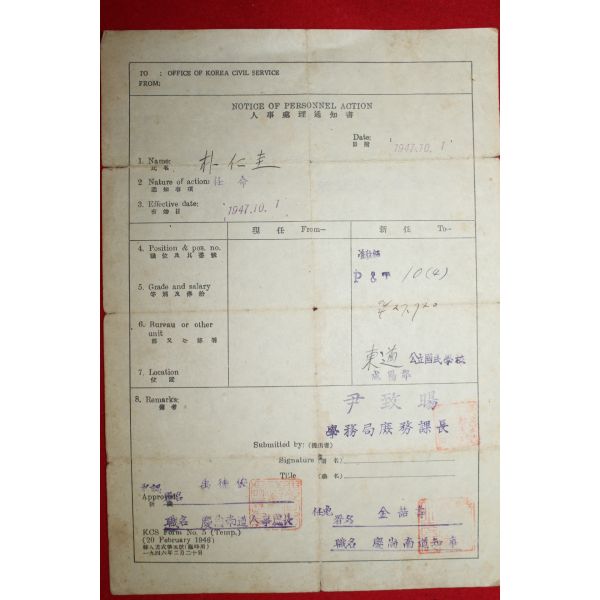 TO : OFFICE OF KOREA CIVIL SERVICE
FROM:
NOTICE OF PERSONNEL ACTION
人事處理通知書
Date: 1947.10.1
日附
1. Name: 朴仁圭
氏名
2 Nature of action: 任命
通知事項
3. Effective date: 1947.10.1
有効日
現任 From—
新任 To—
4. Position & pos. no.
職位及其番號
5. Grade and salary
等級及俸給
10(4)
6. Bureau or other unit
部又는部署
7. Location
位置
東道 公立國民學校
咸陽郡
8. Remarks:
備考
尹致暘
學務局庶務課長
Submitted by: (提出者)
Signature (署名)
Title (職名)
承認
Approved:
署名
職名 慶尙南道人事處長
任免
署名
職名 慶尙南道知事
KCS Form No. 5 (Temp.)
(20 February 1946)
一九四六年二月二十日